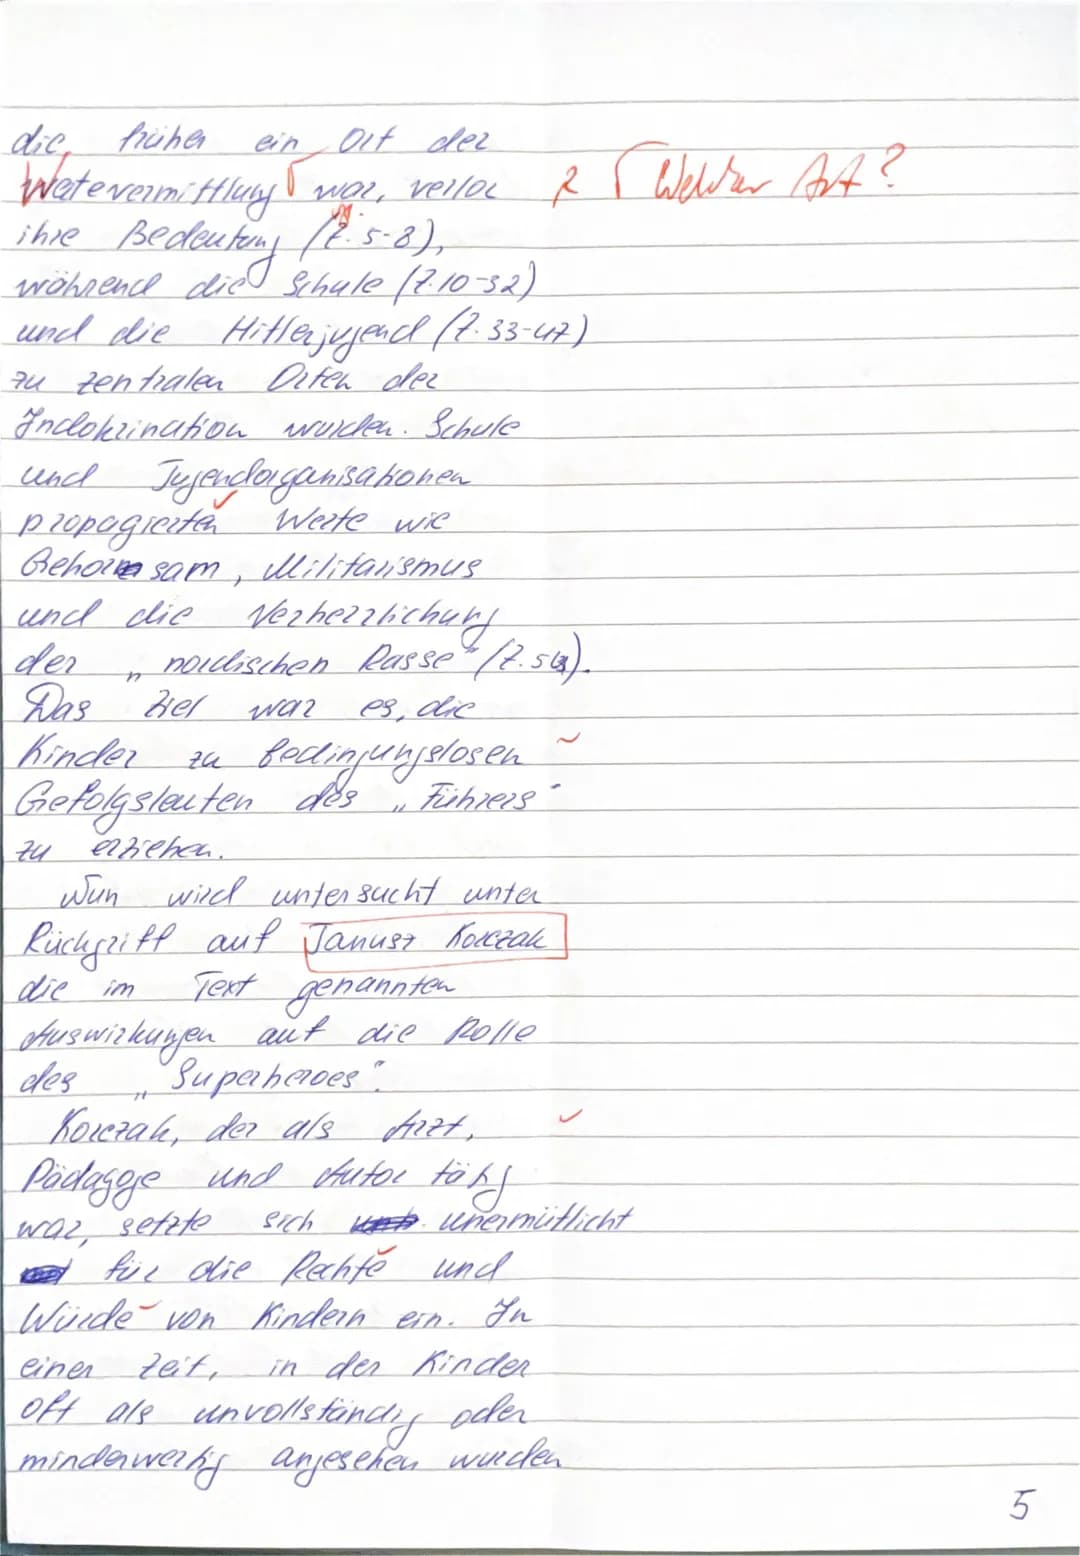 die, früher ein Ort der
Wertevermittlung war, verlor R Γ Welcher Art?
ihre Bedeutung (Z. 5-8),
während die Schule (Z. 10-32)
und die Hitlerjugend (Z. 33-47)
zu zentralen Orten der
Indokrination wurden. Schule
und Jugendorganisationen
propagierten Werte wie
Gehorsam, Militarismus
und die Verherrlichung
der „nordischen Rasse" (Z. 56).
Das Ziel war es, die
Kinder zu bedingungslosen
Gefolgsleuten des „Führers"
zu erziehen.
Nun wird untersucht unter
Rückgriff auf Janusz Korczak
die im Text genannten
Auswirkungen auf die Rolle
des „Superheroes".
Korczak, der als Arzt,
Pädagoge und Autor tätig
war, setzte sich unermütlicht
für die Rechte und
Würde von Kindern ein. In
einer Zeit, in der Kinder
oft als unvollständig oder
minderwertig angesehen wurden
5